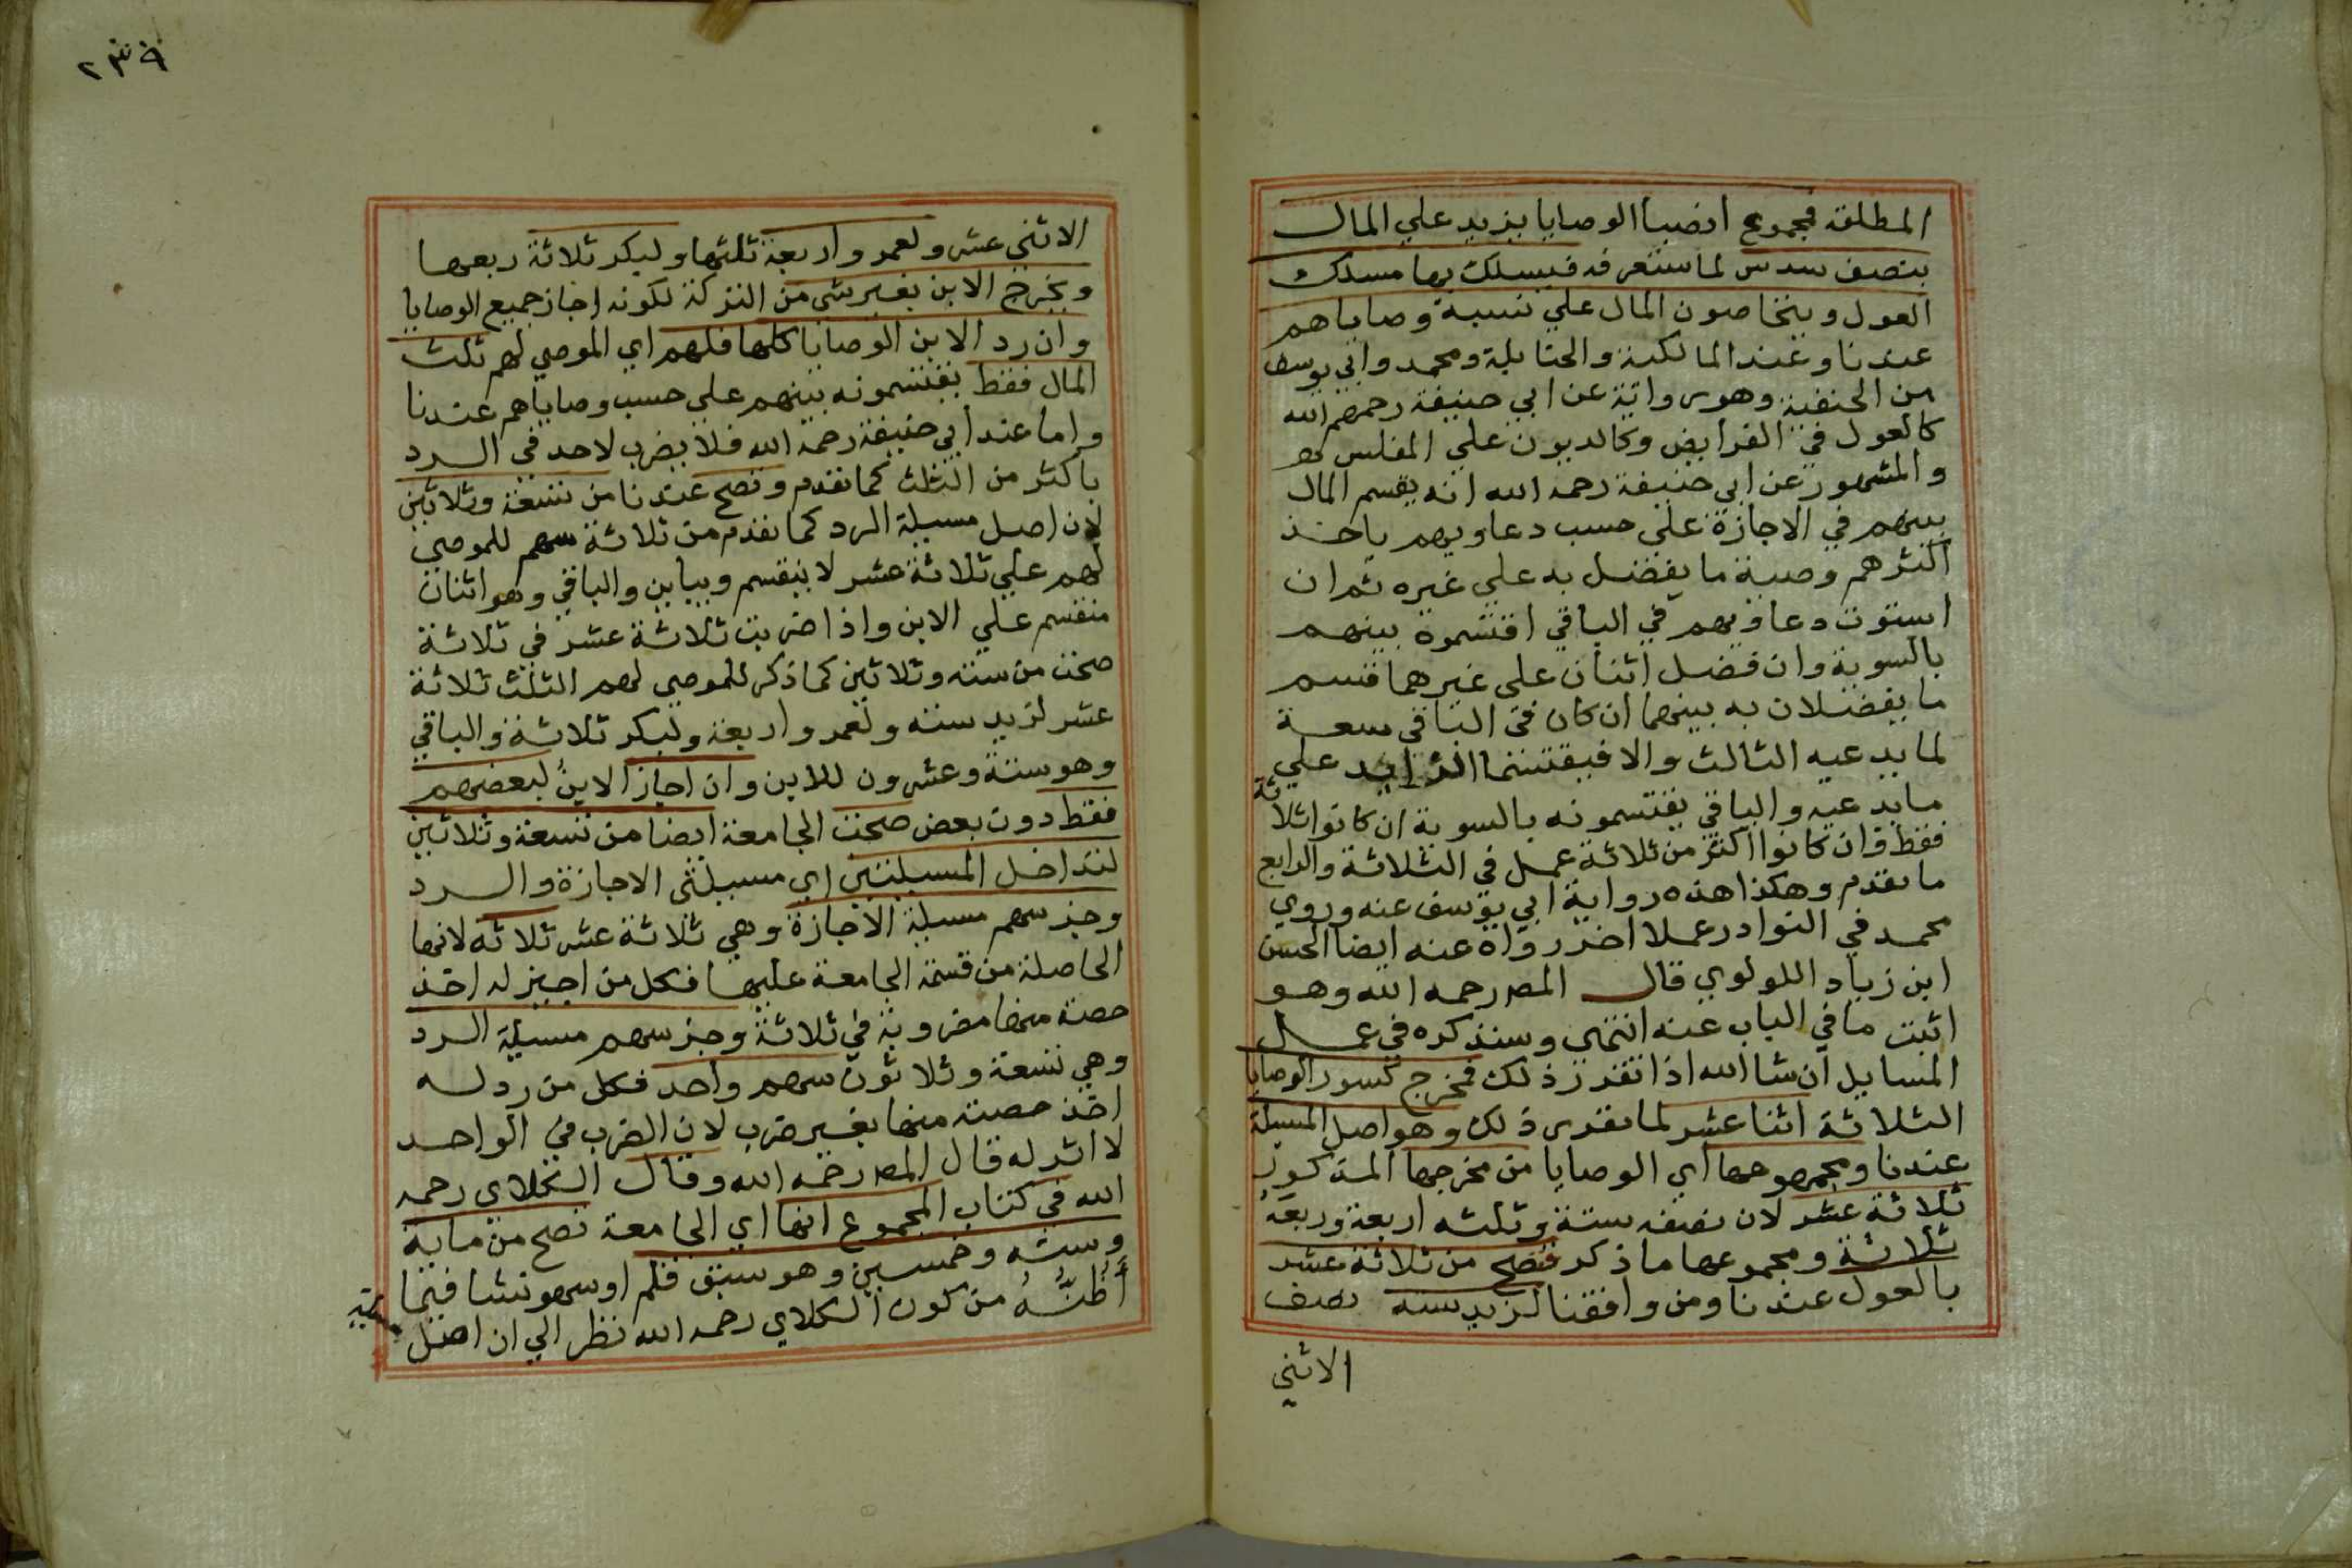 المطلقة فمجموع انصبا الوصايا يزيد علي المال
بنصف سدس لما ستعرفه فيسلك بها مسلك
العول ويتخاصون المال علي نسبة وصاياهم
عندنا وعند المالكية والحنابلة ومحمد وابي يوسف
من الحنفية وهو رواية عن ابي حنيفة رحمهم الله
كالعول في الفرايض وكالديون علي المفلس
والمشهور عن ابي حنيفة رحمه الله انه يقسم المال
بينهم في الاجازة علي حسب دعاويهم ياخذ
اكثرهم وصية ما يفضل به علي غيره ثم ان
استوت دعاويهم في الباقي اقتسموه بينهم
بالسوية وان فضل اثنان علي غيرهما قسم
ما يفضلان به بينهما ان كان في الباقي سعة
لما يدعيه الثالث والا فيقتسما الزايد علي
ما يدعيه والباقي يقتسمونه بالسوية ان كانوا ثلاثة
فقط وان كانوا اكثر من ثلاثة عمل في الثلاثة والرابع
ما تقدم وهكذا هذه رواية ابي يوسف عنه وروي
محمد في النوادر عملا اخر رواه عنه ايضا الحسن
ابن زياد اللولوي قال المصر رحمه الله وهو
اثبت ما في الباب عنه انتهي وسنذكره في عمل
المسايل ان شا الله اذا تقرر ذلك فمخرج كسور الوصايا
الثلاثة اثنا عشر لما تقرر ذلك وهو اصل المسيلة
عندنا ومجموعها اي الوصايا من مخرجها المذكور
ثلاثة عشر لان نصفه ستة وثلثه اربعة وربعه
ثلاثة ومجموعها ما ذكر فتصح من ثلاثة عشر
بالعول عندنا ومن وافقنا لزيد ستة نصف
الاثني
٢٣٩
الاثني عشر ولعمرو اربعة ثلثها ولبكر ثلاثة ربعها
ويخرج الابن بغير شي من التركة لكونه اجاز جميع الوصايا
وان رد الابن الوصايا كلها فلهم اي الموصي لهم ثلث
المال فقط يقتسمونه بينهم علي حسب وصاياهم عندنا
واما عند ابي حنيفة رحمه الله فلا يضرب لاحد في الرد
باكثر من الثلث كما تقدم وتصح عندنا من تسعة وثلاثين
لان اصل مسيلة الرد كما تقدم من ثلاثة سهم للموصي
لهم علي ثلاثة عشر لا ينقسم ويباين والباقي وهو اثنان
منقسم علي الابن واذا ضربت ثلاثة عشر في ثلاثة
صحت من ستة وثلاثين كما ذكر للموصي لهم الثلث ثلاثة
عشر لزيد ستة ولعمرو اربعة ولبكر ثلاثة والباقي
وهو ستة وعشرون للابن وان اجاز الابنُ لبعضهم
فقط دون بعض صحت الجامعة ايضا من تسعة وثلاثين
لتداخل المسيلتين اي مسيلتي الاجازة والرد
وجز سهم مسيلة الاجازة وهي ثلاثة عشر ثلاثه لانها
الحاصلة من قسمة الجامعة عليها فكل من اجيز له اخذ
حصته منها مضروبة في ثلاثة وجز سهم مسيلة الرد
وهي تسعة وثلاثون سهم واحد فكل من رد له
اخذ حصته منها بغير ضرب لان الضرب في الواحد
لا اثر له قال المصر رحمه الله وقال الكلاي رحمه
الله في كتاب المجموع انها اي الجامعة تصح من ماية
وستة وخمسين وهو سبق قلم او سهو نشا فيما
أظُنُّهُ من كون الكلاي رحمه الله نظر الي ان اصل